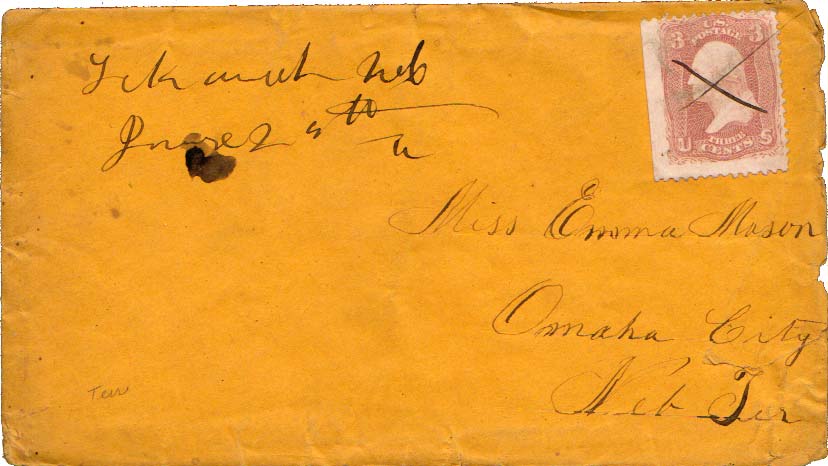 Tekamah Neb
June 25th
U.S. POSTAGE
3 3
U THREE CENTS S
Miss Emma Mason
Omaha City
Neb Ter
Terr